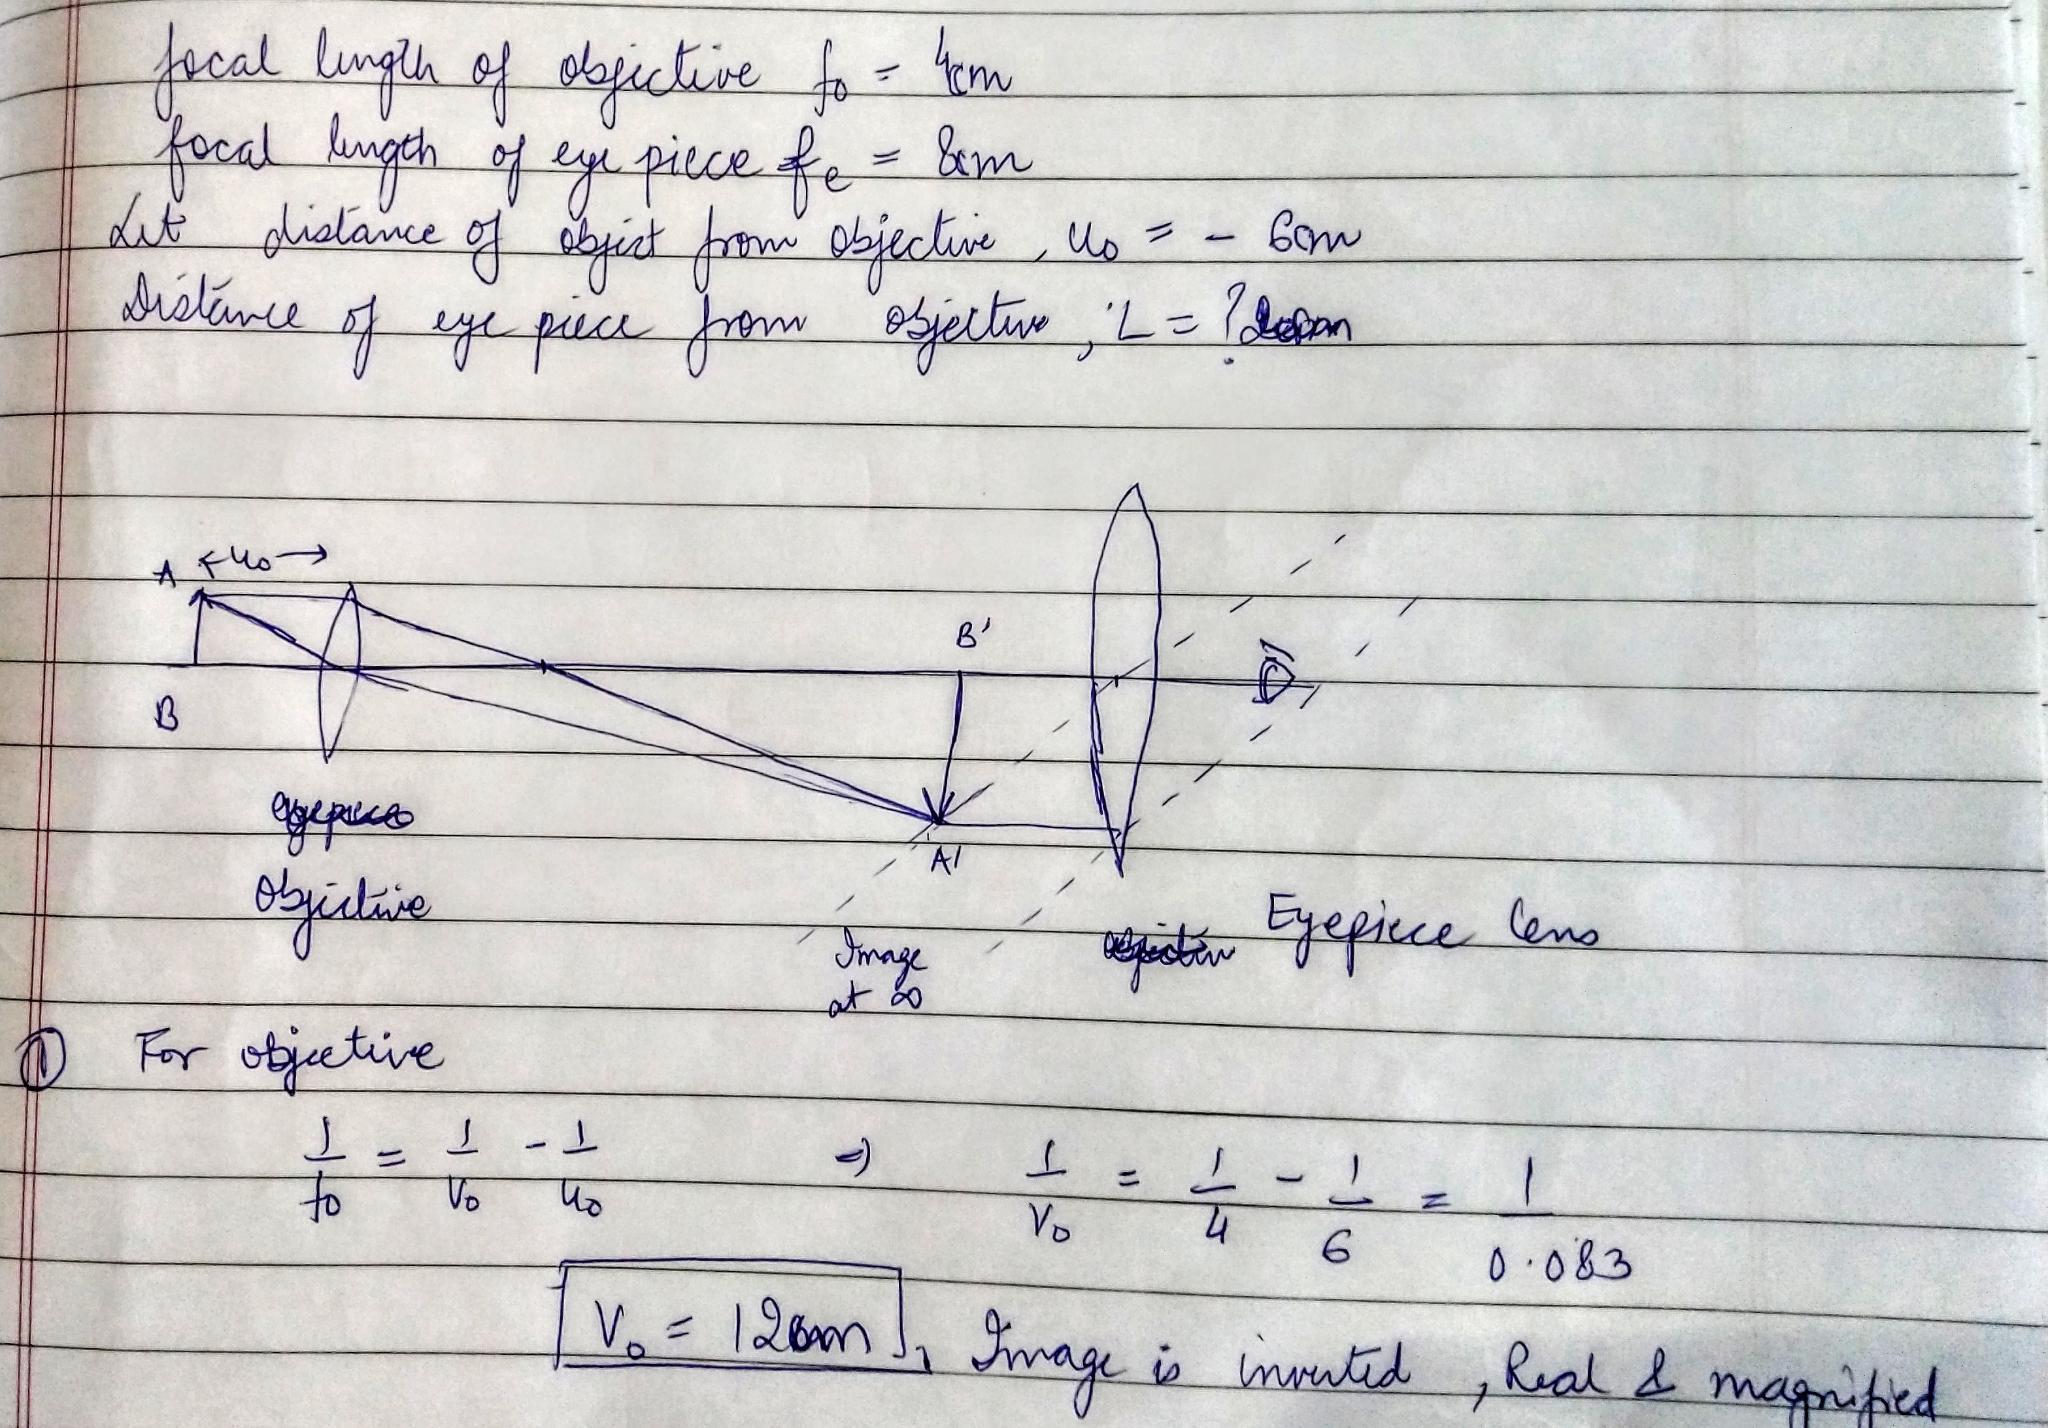 focal length of objective fo = 4cm
focal length of eye piece fe = 8cm
Let distance of object from objective, uo = - 6cm
Distance of eye piece from objective, L = ?
A ← uo →
B'
B
A'
Objective
Eyepiece lens
Image
at ∞
① For objective
1/fo = 1/Vo - 1/uo ⇒ 1/Vo = 1/4 - 1/6 = 1/0.083
Vo = 12cm, Image is inverted, Real & magnified